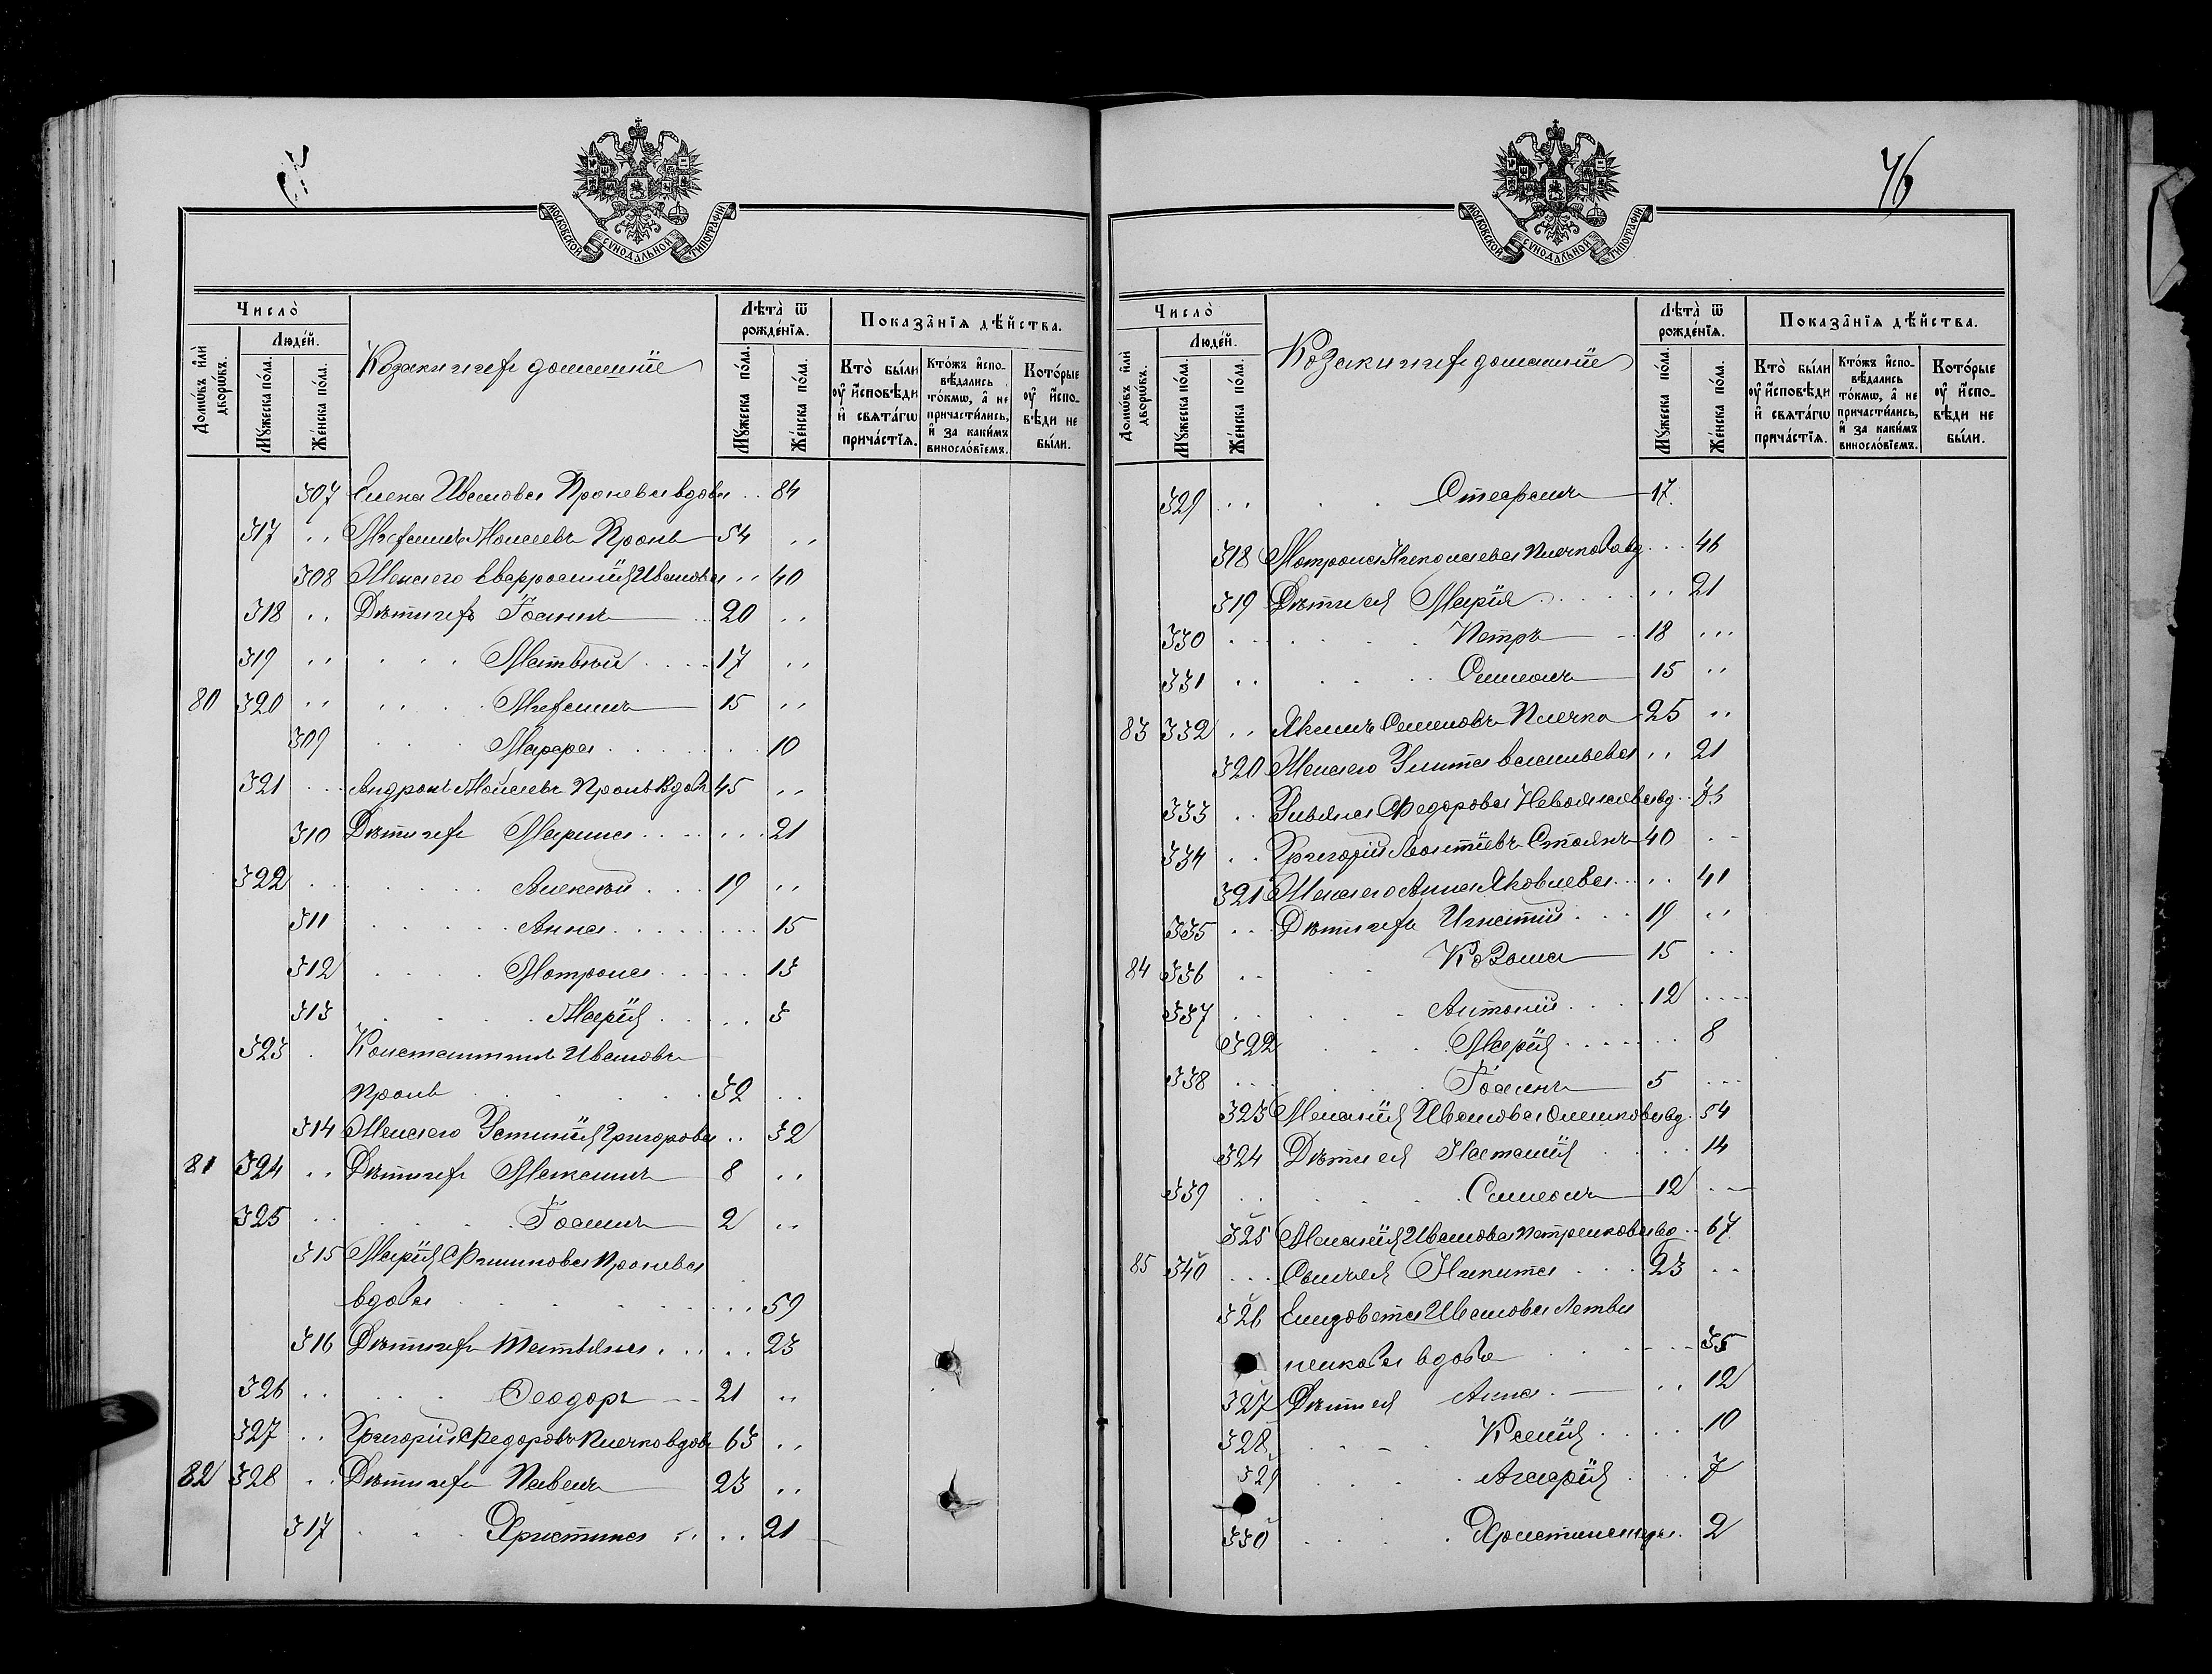 МОСКОВСКОЙ СѴНОДАЛЬНОЙ ТИПОГРАФІИ
Число̀
Людей.
Домѡвъ и҆лѝ дворѡвъ.
Мꙋжеска по́ла.
Же́нска по́ла.
Козаки и ихъ домашніе
Лѣта̀ ѿ рожде́нїѧ.
Мꙋжеска по́ла.
Же́нска по́ла.
Показа̂нїѧ дѣ́йства.
Кто̀ бы́ли ᲂу҆ и҆сповѣди и҆ свѧта́гѡ прича́стїѧ.
Кто́жъ и҆спо-вѣдались то́кмѡ, а҆ не причасти́лись, и҆ за каки́мъ винослоⷡ҇їемъ.
Кото́рые ᲂу҆ и҆спо-вѣди не бы́ли.
307 Елена Иванова Кронева вдова .. 84
317 .. Максимъ Моисеевъ Кронь 54 ..
308 Жена его Евфросинія Иванова .. 40
318 .. Дѣти ихъ Іоаннъ 20 ..
319 .. Матвѣй 17 ..
80 320 .. Максимъ 15 ..
309 Марфа 10
321 Андронъ Моисеевъ Кронь вдов 45 ..
310 Дѣти ихъ Марина 21
322 Алексѣй 19 ..
311 Анна 15
312 Матрона 13
313 Марія 3
323 Константинъ Ивановъ
Кронь 32 ..
314 Жена его Устинія Григорова .. 32
81 324 .. Дѣти ихъ Максимъ 8 ..
325 .. Іоаннъ 2 ..
315 Марія Филипова Кронева
вдова 59
316 Дѣти ихъ Татьяна .. 23
326 .. Ѳеодоръ 21 ..
327 .. Григорій Федоровъ Плечко вдов 63 ..
82 328 .. Дѣти ихъ Павелъ 23 ..
317 Христина .. 21
76
МОСКОВСКОЙ СѴНОДАЛЬНОЙ ТИПОГРАФІИ
Число̀
Людей.
Домѡвъ и҆лѝ дворѡвъ.
Мꙋжеска по́ла.
Же́нска по́ла.
Козаки и ихъ домашніе
Лѣта̀ ѿ рожде́нїѧ.
Мꙋжеска по́ла.
Же́нска по́ла.
Показа̂нїѧ дѣ́йства.
Кто̀ бы́ли ᲂу҆ и҆сповѣди и҆ свѧта́гѡ прича́стїѧ.
Кто́жъ и҆спо-вѣдались то́кмѡ, а҆ не причасти́лись, и҆ за каки́мъ винослоⷡ҇їемъ.
Кото́рые ᲂу҆ и҆спо-вѣди не бы́ли.
329 .. Стефанъ 17
318 Мотрона Николаева Плечкова вд .. 46
319 Дѣти ея Марія .. 21
330 Петръ 18 ...
331 .. Симеонъ 15 ..
83 332 .. Якимъ Семеновъ Плечко 25 ..
320 Жена его Улита Васильева .. 21
333 .. Ульяна Федорова вд
334 .. Григорій Леонтіевъ Столкъ 40
321 Жена его Анна Яковлева .. 41
335 .. Дѣти ихъ Игнатій 19 ..
84 336 .. Козма 15 ..
337 .. Антоній 12
322 Марія 8
338 Іоаннъ 5
323 Меланія Иванова вд. 54
324 Дѣти ея Наталія 14
339 .. Симеонъ 12
325 Меланія Иванова Петренкова вд .. 67
85 340 Сынъ ея Никита 23 ..
326 Елизавета Иванова Литви
ненкова вдова 35
327 Дѣти ея Анна .. 12
328 Ксенія 10
329 7
330 2